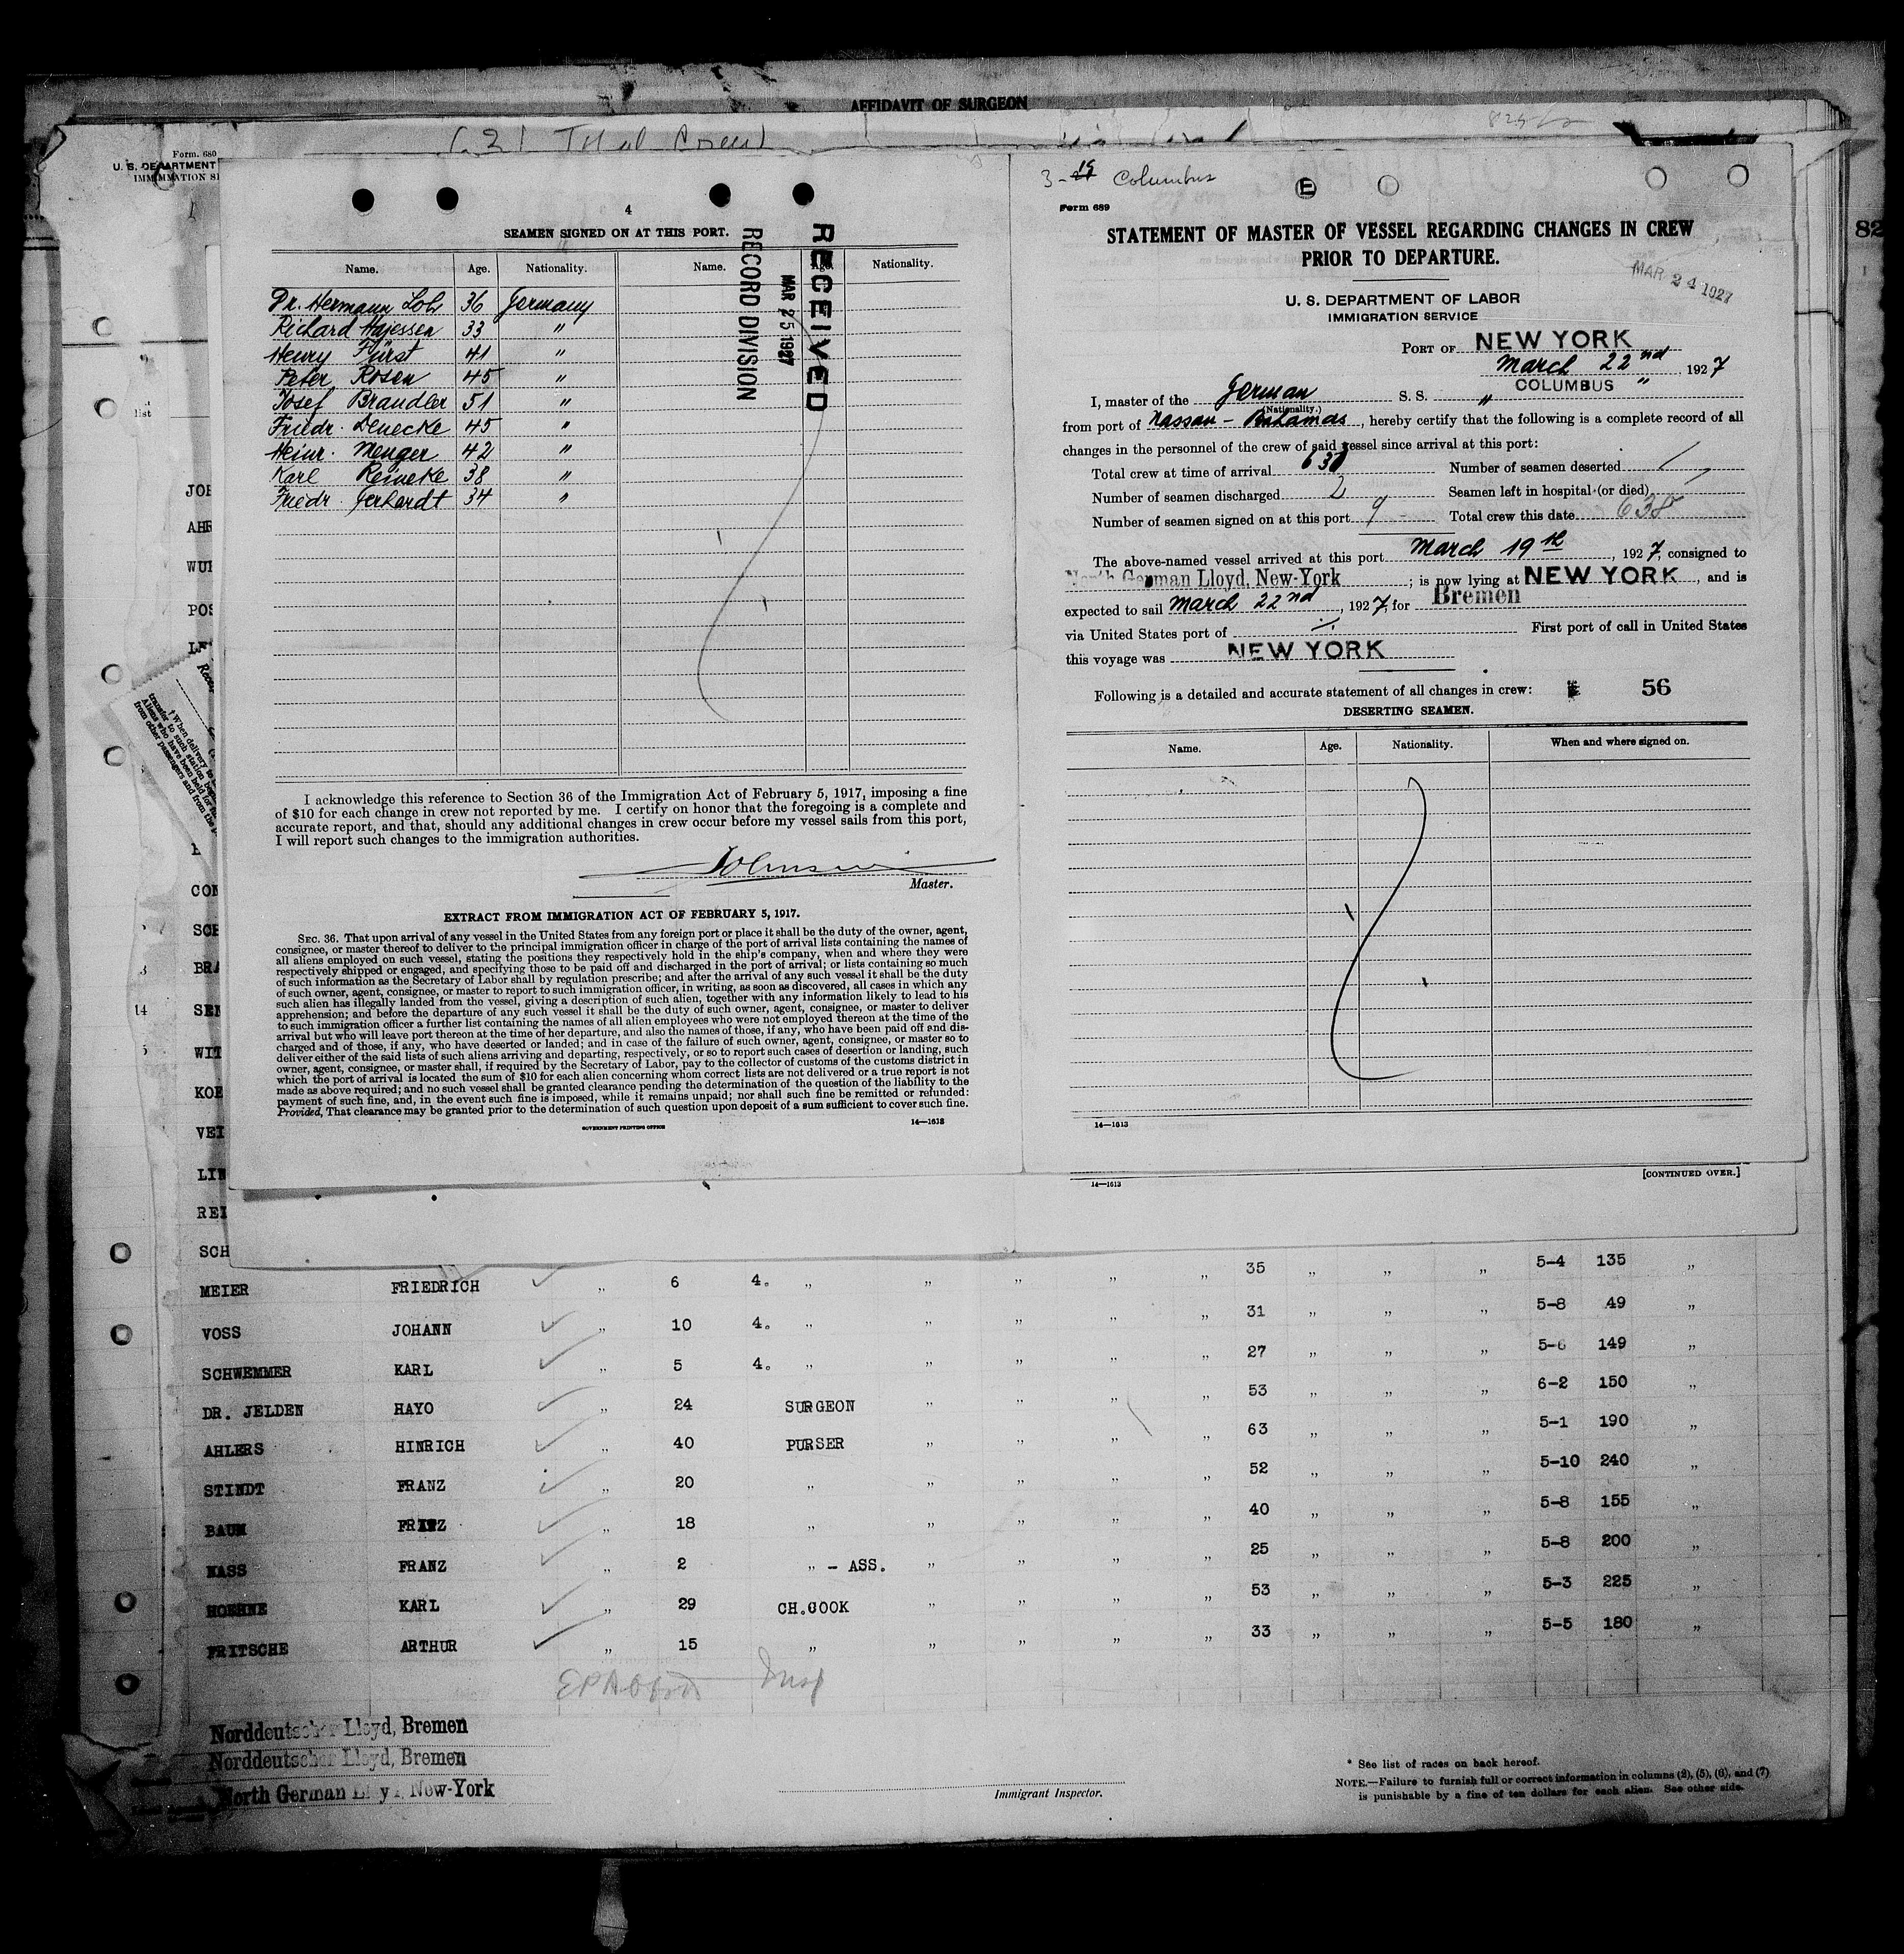 AFFIDAVIT OF SURGEON
Form. 680
U. S. DEPARTMENT
82
4
SEAMEN SIGNED ON AT THIS PORT.
Name. Age. Nationality. Name. Age. Nationality.
Dr. Hermann Loh 36 Germany
Richard Hajessen 33 "
Henry Fürst 41 "
Peter Rosen 45 "
Josef Brandler 51 "
Friedr. Denecke 45 "
Heinr. Menger 42 "
Karl Reineke 38 "
Friedr. Gerhardt 34 "
RECEIVED
MAR 25 1927
RECORD DIVISION
I acknowledge this reference to Section 36 of the Immigration Act of February 5, 1917, imposing a fine
of $10 for each change in crew not reported by me. I certify on honor that the foregoing is a complete and
accurate report, and that, should any additional changes in crew occur before my vessel sails from this port,
I will report such changes to the immigration authorities.
Master.
EXTRACT FROM IMMIGRATION ACT OF FEBRUARY 5, 1917.
SEC. 36. That upon arrival of any vessel in the United States from any foreign port or place it shall be the duty of the owner, agent,
consignee, or master thereof to deliver to the principal immigration officer in charge of the port of arrival lists containing the names of
all aliens employed on such vessel, stating the positions they respectively hold in the ship's company, when and where they were
respectively shipped or engaged, and specifying those to be paid off and discharged in the port of arrival; or lists containing so much
of such information as the Secretary of Labor shall by regulation prescribe; and after the arrival of any such vessel it shall be the duty
of such owner, agent, consignee, or master to report to such immigration officer, in writing, as soon as discovered, all cases in which any
such alien has illegally landed from the vessel, giving a description of such alien, together with any information likely to lead to his
apprehension; and before the departure of any such vessel it shall be the duty of such owner, agent, consignee, or master to deliver
to such immigration officer a further list containing the names of all alien employees who were not employed thereon at the time of the
arrival but who will leave port thereon at the time of her departure, and also the names of those, if any, who have been paid off and dis-
charged and of those, if any, who have deserted or landed; and in case of the failure of such owner, agent, consignee, or master so to
deliver either of the said lists of such aliens arriving and departing, respectively, or so to report such cases of desertion or landing, such
owner, agent, consignee, or master shall, if required by the Secretary of Labor, pay to the collector of customs of the customs district in
which the port of arrival is located the sum of $10 for each alien concerning whom correct lists are not delivered or a true report is not
made as above required; and no such vessel shall be granted clearance pending the determination of the question of the liability to the
payment of such fine, and, in the event such fine is imposed, while it remains unpaid; nor shall such fine be remitted or refunded:
Provided, That clearance may be granted prior to the determination of such question upon deposit of a sum sufficient to cover such fine.
GOVERNMENT PRINTING OFFICE 14—1613
3- 19 Columbus
E
Form 689
STATEMENT OF MASTER OF VESSEL REGARDING CHANGES IN CREW
PRIOR TO DEPARTURE.
MAR 24 1927
U. S. DEPARTMENT OF LABOR
IMMIGRATION SERVICE
PORT OF NEW YORK
March 22nd, 1927
I, master of the German S. S. COLUMBUS "
(Nationality.)
from port of Nassau - Bahamas, hereby certify that the following is a complete record of all
changes in the personnel of the crew of said vessel since arrival at this port:
Total crew at time of arrival 631 Number of seamen deserted /
Number of seamen discharged 2 Seamen left in hospital (or died) /
Number of seamen signed on at this port 9 Total crew this date 638
The above-named vessel arrived at this port March 19th, 1927, consigned to
North German Lloyd, New-York; is now lying at NEW YORK, and is
expected to sail March 22nd, 1927, for Bremen
via United States port of First port of call in United States
this voyage was NEW YORK
Following is a detailed and accurate statement of all changes in crew: 56
DESERTING SEAMEN.
Name. Age. Nationality. When and where signed on.
14—1613
14—1613 [CONTINUED OVER.]
list
14
MEIER FRIEDRICH „ 6 4. „ „ „ „ „ 35 „ „ „ 5-4 135 „
VOSS JOHANN „ 10 4. „ „ „ „ „ 31 „ „ „ 5-8 49 „
SCHWEMMER KARL „ 5 4. „ „ „ „ „ 27 „ „ „ 5-6 149 „
DR. JELDEN HAYO „ 24 SURGEON „ „ „ „ 53 „ „ „ 6-2 150 „
AHLERS HINRICH „ 40 PURSER „ „ „ „ 63 „ „ „ 5-1 190 „
STINDT FRANZ „ 20 „ „ „ „ „ 52 „ „ „ 5-10 240 „
BAUM FRITZ „ 18 „ „ „ „ „ 40 „ „ „ 5-8 155 „
KASS FRANZ „ 2 „ - ASS. „ „ „ „ 25 „ „ „ 5-8 200 „
HOEHNE KARL „ 29 CH.COOK „ „ „ „ 53 „ „ „ 5-3 225 „
FRITSCHE ARTHUR „ 15 „ „ „ „ „ 33 „ „ „ 5-5 180 „
Insp
Norddeutscher Lloyd, Bremen
Norddeutscher Lloyd, Bremen
North German Lloyd, New-York
Immigrant Inspector.
* See list of races on back hereof.
NOTE.—Failure to furnish full or correct information in columns (2), (5), (6), and (7)
is punishable by a fine of ten dollars for each alien. See other side.